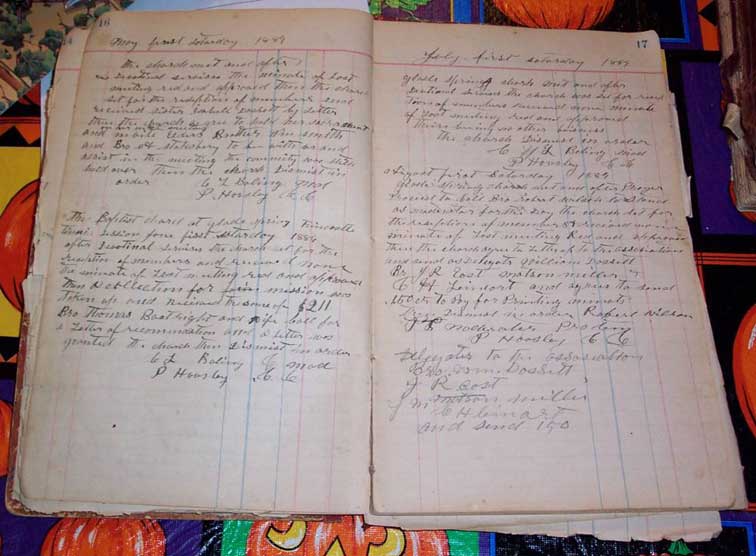 16
May first saturday 1889
the church mit and after
devotional services the minute of Last
meeting red and approved then the church
set for the reseption of members and
recieved sister by Letter
then the church agree to hold her sacrament
and invite Elders Brother smith
and Bro stalsbery to be with us and
assist in the meeting the comunity was
hold over then the church Dismist in
order C L Boling Mod
P Hoosley C C
The Baptist church at glade spring
June first saturday 1889
after Devotional services the church set for the
reseption of members and recieved
the minute of Last meeting red and approved
then a collection for mission was
taken up and recieved the some of $2.11
Bro Thomas Boatright and wife call for
a Letter of recommendation and a Letter was
granted the church then Dismist in order
C L Boling Mod
P Hoosley C C
17
July first saturday 1889
glade spring church mit and after
Devotional services the church set for
of members recieved none minute
of Last meeting red and approved
there being no other business
the church Dismist in order
C L Boling Mod
P Hoosley C C
August first Saturday 1889
glade spring church mit and after Prayer
Proceed to call Bro Robert Wilson to stand
as moderator for the Day the church set for
the reseption of members recieved
minute of Last meeting Red and approved
then the church agree to Letter to the association
and send as Delegate William Dossett
Bro J R Cost matson miller
C H and agree to send
to Pay for Printing minute
Dismist in order Robert Wilson
moderator Pro
P Hoosley C C
Delegates to the association
Bro. Wm. Dossett
J R Cost
J M matson miller
C H
and send 1.50